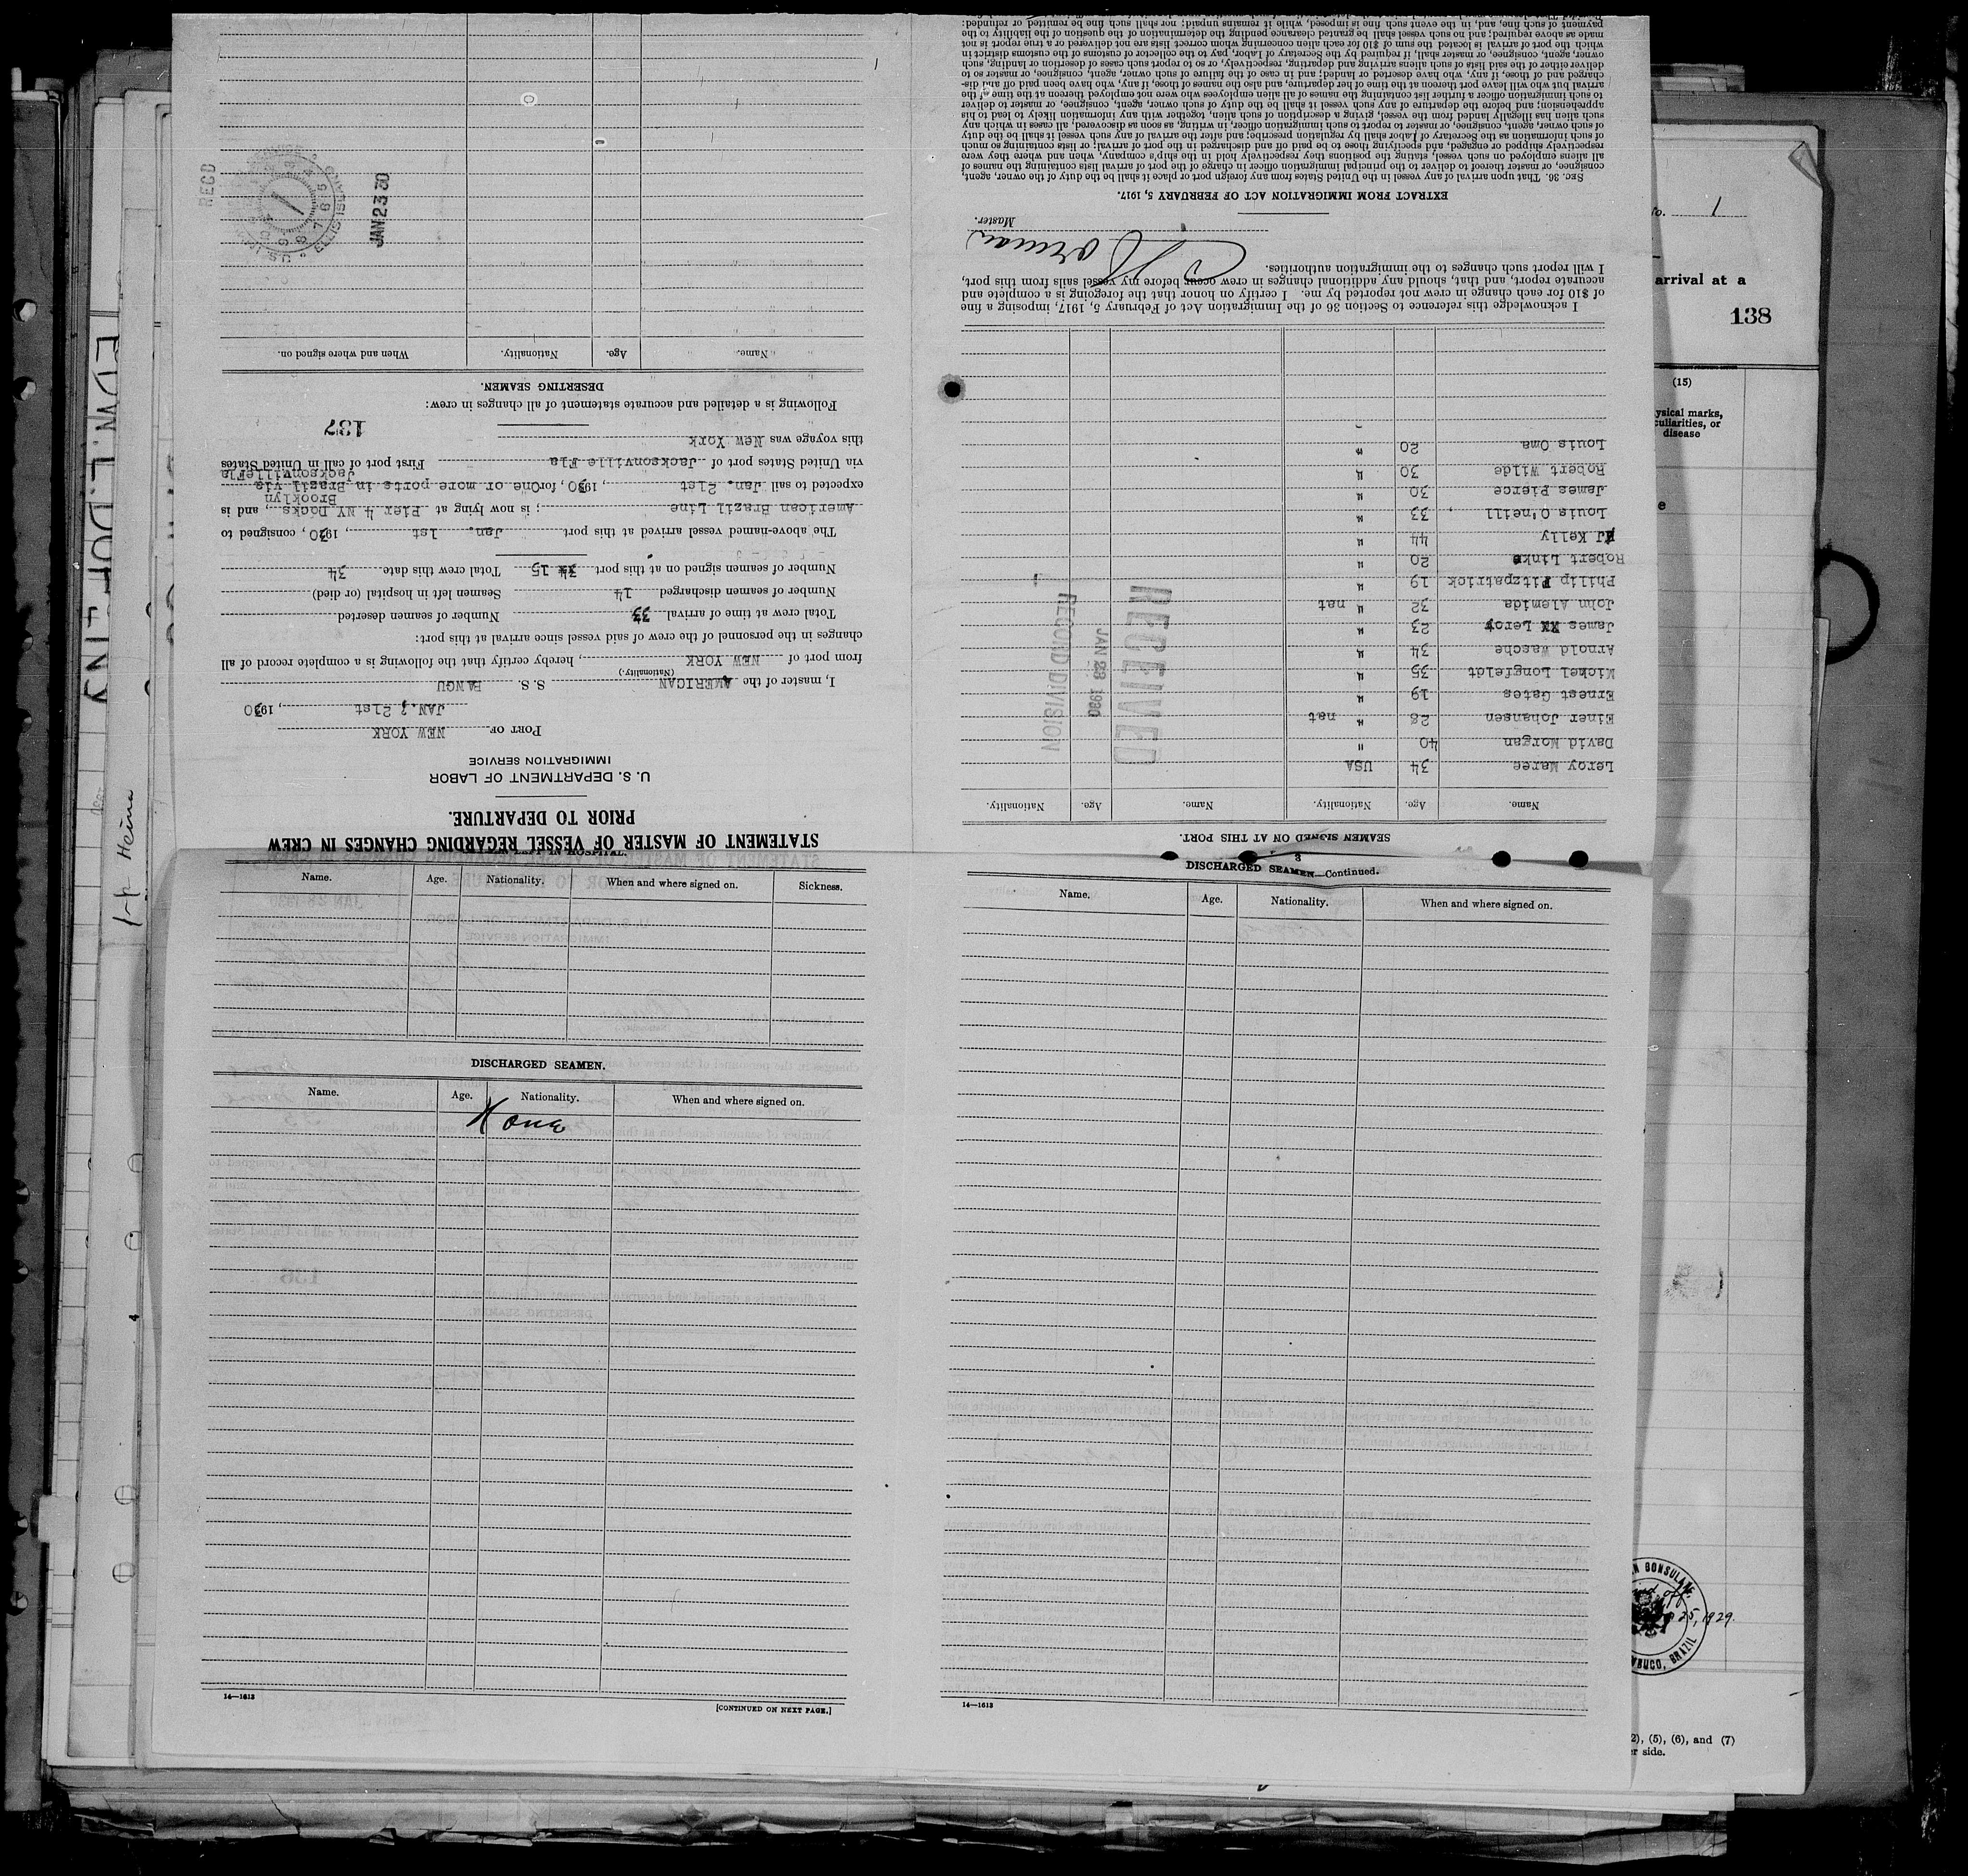 STATEMENT OF MASTER OF VESSEL REGARDING CHANGES IN CREW
PRIOR TO DEPARTURE.
U. S. DEPARTMENT OF LABOR
IMMIGRATION SERVICE
PORT OF NEW YORK
JAN. 21st, 1930
I, master of the AMERICAN S. S. PANGU
(Nationality.)
from port of NEW YORK, hereby certify that the following is a complete record of all
changes in the personnel of the crew of said vessel since arrival at this port:
Total crew at time of arrival 33 Number of seamen deserted
Number of seamen discharged 14 Seamen left in hospital (or died)
Number of seamen signed on at this port 15 Total crew this date 34
The above-named vessel arrived at this port Jan. 1st, 1930, consigned to
American Brazil Line; is now lying at Pier 4 NY Docks, and is
Brooklyn
expected to sail Jan. 21st, 1930, for One or more ports in Brazil via
Jacksonville Fla
via United States port of Jacksonville Fla First port of call in United States
this voyage was New York
137
Following is a detailed and accurate statement of all changes in crew:
DESERTING SEAMEN.
Name. Age. Nationality. When and where signed on.
JAN 23 30
RECD
ELLIS ISLAND
SEAMEN SIGNED ON AT THIS PORT.
Name. Age. Nationality. Name. Age. Nationality.
Leroy Maree 34 USA
David Morgan 40 "
Einer Johansen 28 " nat
Ernest Gates 19 "
Mickel Longfeldt 35 "
Arnold Wasche 34 "
James Leroy 23 "
John Alemida 32 " nat
Philip Fitzpatrick 19 "
Robert Linke 20 "
AJ Kelly 44 "
Louis O'neill 33 "
James Pierce 30 "
Robert Wilde 30 "
Louis Oma 20 "
RECEIVED
JAN 28 1930
RECORD DIVISION
I acknowledge this reference to Section 36 of the Immigration Act of February 5, 1917, imposing a fine
of $10 for each change in crew not reported by me. I certify on honor that the foregoing is a complete and
accurate report, and that, should any additional changes in crew occur before my vessel sails from this port,
I will report such changes to the immigration authorities.
Master.
EXTRACT FROM IMMIGRATION ACT OF FEBRUARY 5, 1917.
SEC. 36. That upon arrival of any vessel in the United States from any foreign port or place it shall be the duty of the owner, agent,
consignee, or master thereof to deliver to the principal immigration officer in charge of the port of arrival lists containing the names of
all aliens employed on such vessel, stating the positions they respectively hold in the ship's company, when and where they were
respectively shipped or engaged, and specifying those to be paid off and discharged in the port of arrival; or lists containing so much
of such information as the Secretary of Labor shall by regulation prescribe; and after the arrival of any such vessel it shall be the duty
of such owner, agent, consignee, or master to report to such immigration officer, in writing, as soon as discovered, all cases in which any
such alien has illegally landed from the vessel, giving a description of such alien, together with any information likely to lead to his
apprehension; and before the departure of any such vessel it shall be the duty of such owner, agent, consignee, or master to deliver
to such immigration officer a further list containing the names of all alien employees who were not employed thereon at the time of the
arrival but who will leave port thereon at the time of her departure, and also the names of those, if any, who have been paid off and dis-
charged and of those, if any, who have deserted or landed; and in case of the failure of such owner, agent, consignee, or master so to
deliver either of the said lists of such aliens arriving and departing, respectively, or so to report such cases of desertion or landing, such
owner, agent, consignee, or master shall, if required by the Secretary of Labor, pay to the collector of customs of the customs district in
which the port of arrival is located the sum of $10 for each alien concerning whom correct lists are not delivered or a true report is not
made as above required; and no such vessel shall be granted clearance pending the determination of the question of the liability to the
payment of such fine, and, in the event such fine is imposed, while it remains unpaid; nor shall such fine be remitted or refunded:
LEFT IN HOSPITAL.
Name. Age. Nationality. When and where signed on. Sickness.
DISCHARGED SEAMEN.
Name. Age. Nationality. When and where signed on.
None
14—1613
[CONTINUED ON NEXT PAGE.]
3
DISCHARGED SEAMEN—Continued.
Name. Age. Nationality. When and where signed on.
14—1613
No. 1
arrival at a
138
(15)
ysical marks,
culiarities, or
disease
e
N CONSULATE
25, 1929.
MBUCO, BRAZIL
2), (5), (6), and (7)
r side.